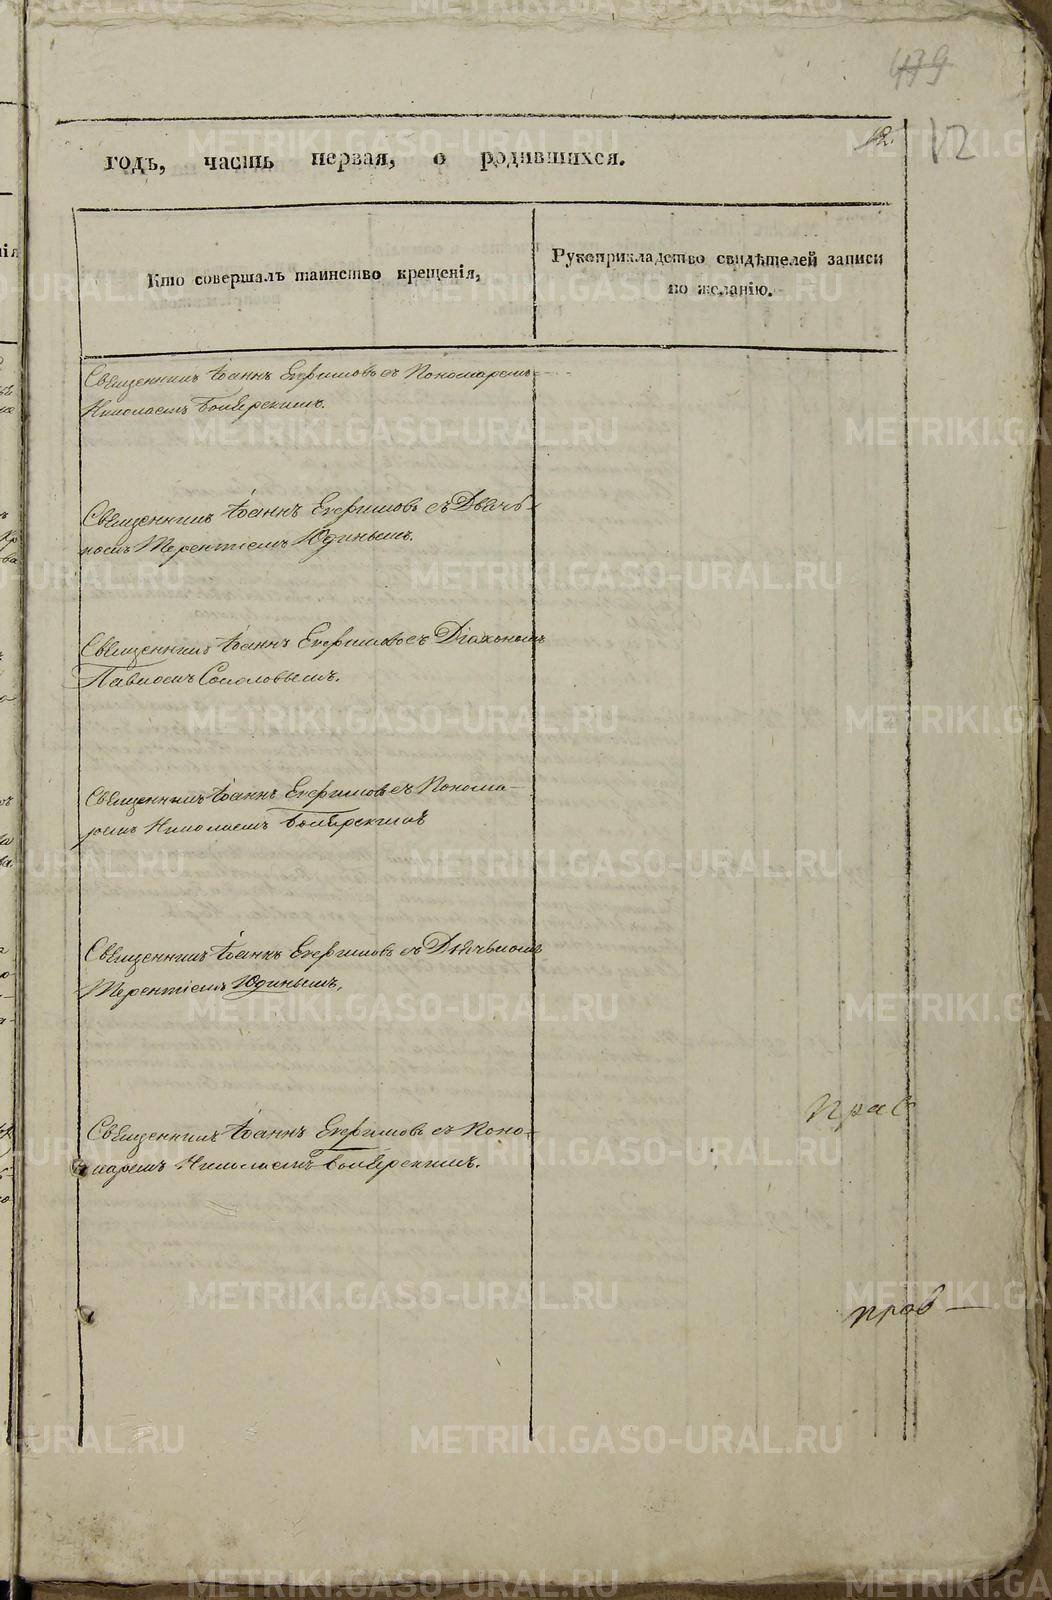 439
12.
12
годъ, часть первая, о родившихся.
Кто совершалъ таинство крещенія,
Рукоприкладство свидѣтелей записи
по желанію.
Священникъ Іоаннъ Ефимовъ съ Пономаремъ
Николаемъ
Священникъ Іоаннъ Ефимовъ съ Дьяч-
комъ Терентіемъ Юдинымъ.
Священникъ Іоаннъ Ефимовъ съ Діакономъ
Павломъ Соколовымъ.
Священникъ Іоаннъ Ефимовъ съ Понома-
ремъ Николаемъ
Священникъ Іоаннъ Ефимовъ съ Дьячкомъ
Терентіемъ Юдинымъ,
Священникъ Іоаннъ Ефимовъ съ Поно-
маремъ Николаемъ
прав
прав
METRIKI.GASO-URAL.RU